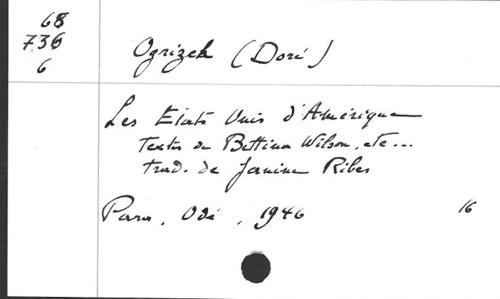 68
736
6
Ogrizek (Doré)
Les Etats Unis d'Amérique
Textes de Bettina Wilson, etc...
trad. de Janine Ribes
Paris, Odé, 1946 16